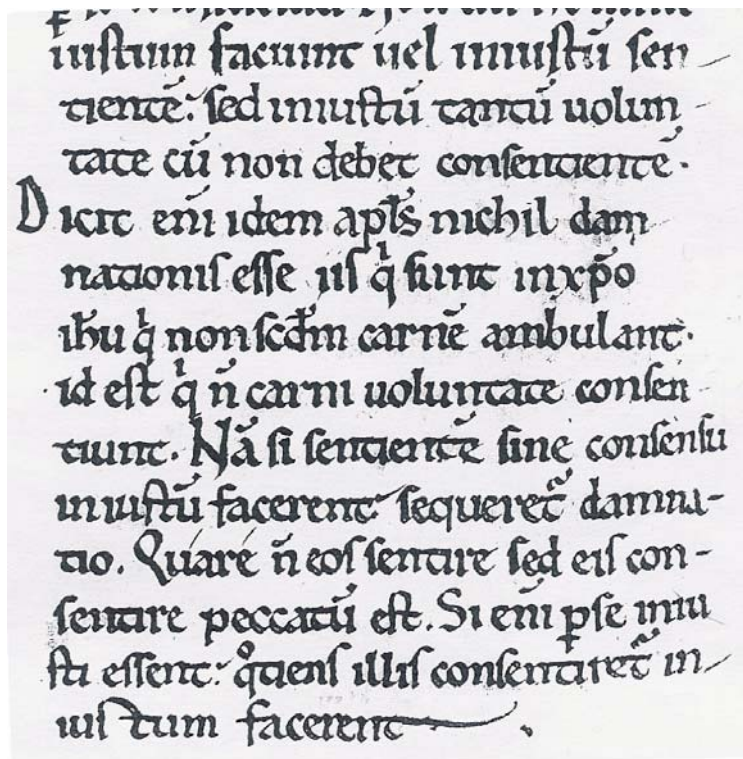 iustum faciunt uel iniustū sen-
tientē: sed iniustū tantū uolun-
tate cū non debet consentientē.
Dicit eni̅ idem apl̅s nichil dam
nationis esse iis qͥ sunt in xp̅o
ih̅u qͥ non scd̅m carnē ambulant.
id est qͥ n̅ carni uoluntate consen-
tiunt. Nā si sentientē sine consensu
iniustū facerent sequeret᷑ damna-
tio. Quare n̅ eos sentire sed eis con-
sentire peccatū est. Si eni̅ ꝑ se iniu
sti essent: qͦtiens illis consentiret᷑ in-
iustum facerent.